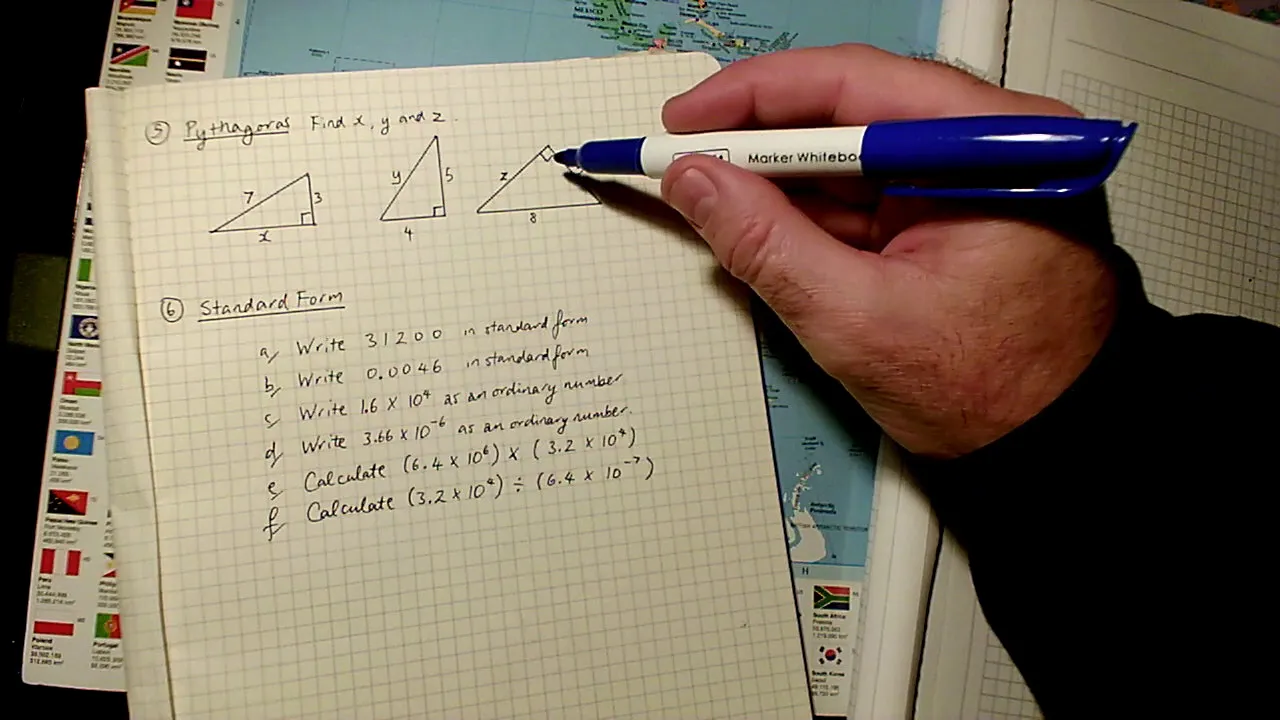 5 Pythagoras Find x, y and z.
7 3 x
y 5 4
z 8
6 Standard Form
a, Write 31200 in standard form
b, Write 0.0046 in standard form
c, Write 1.6 × 10⁴ as an ordinary number
d, Write 3.66 × 10⁻⁶ as an ordinary number.
e, Calculate (6.4 × 10⁶) × (3.2 × 10⁴)
f, Calculate (3.2 × 10⁴) ÷ (6.4 × 10⁻⁷)
Marker Whitebo
MEXICO
H
South Africa
South Korea
Peru
Lima
Poland
Portugal